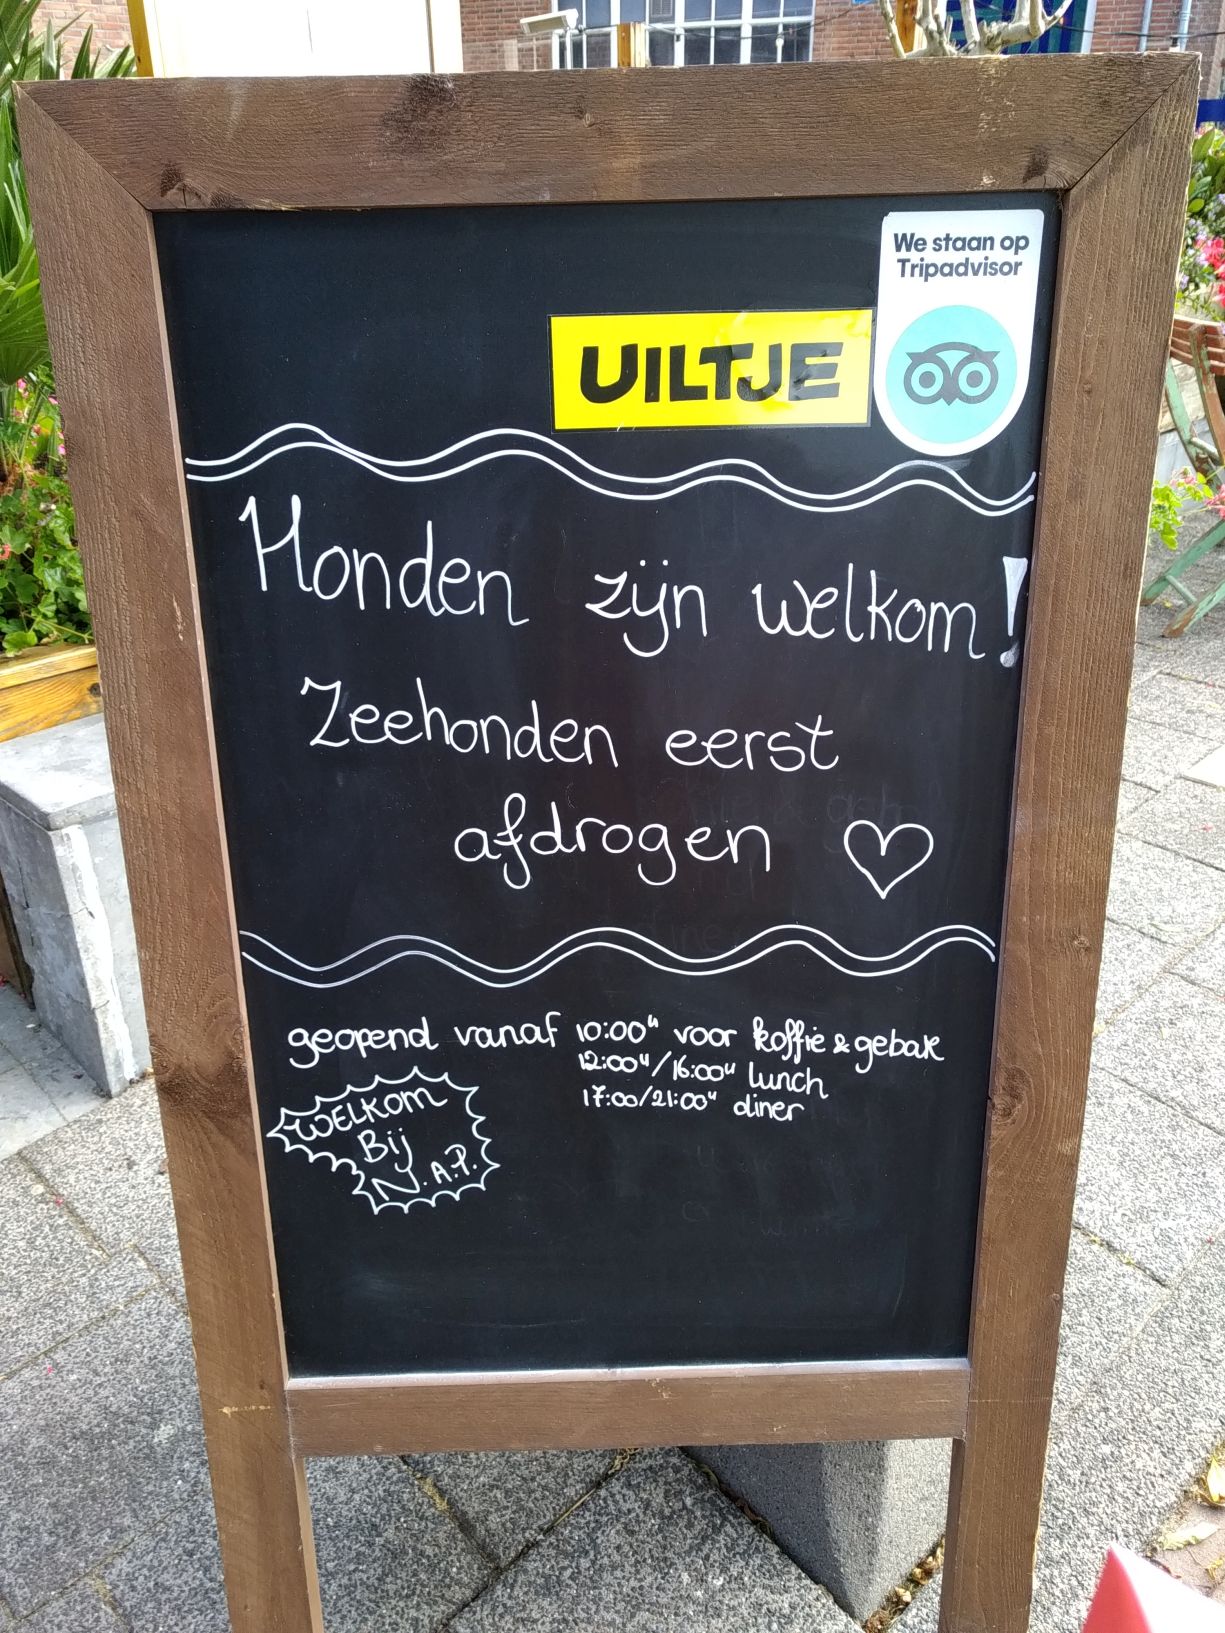 We staan op
Tripadvisor
UILTJE
Honden zijn welkom!
Zeehonden eerst
afdrogen
geopend vanaf 10:00u voor koffie & gebak
12:00u/16:00u lunch
17:00/21:00u diner
WELKOM
Bij
N.A.P.